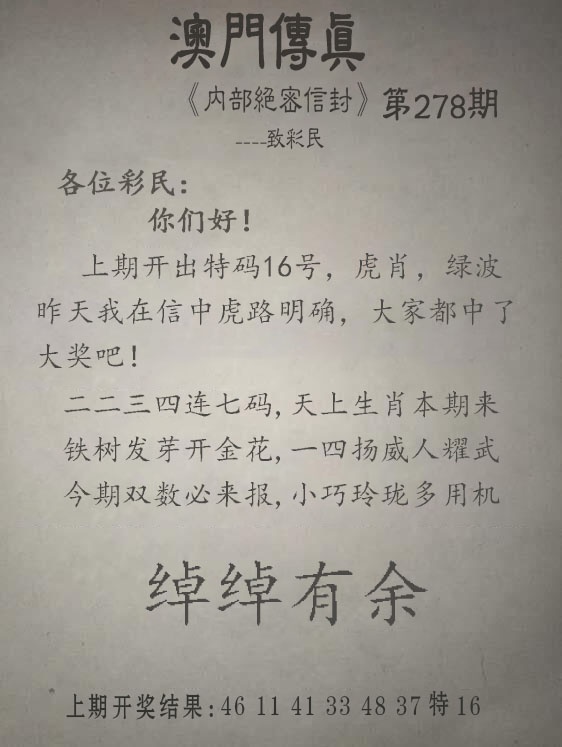 澳門傳真
《内部絕密信封》第278期
----致彩民
各位彩民:
你们好!
上期开出特码16号，虎肖，绿波
昨天我在信中虎路明确，大家都中了
大奖吧!
二二三四连七码,天上生肖本期来
铁树发芽开金花,一四扬威人耀武
今期双数必来报,小巧玲珑多用机
绰绰有余
上期开奖结果:46 11 41 33 48 37 特 16